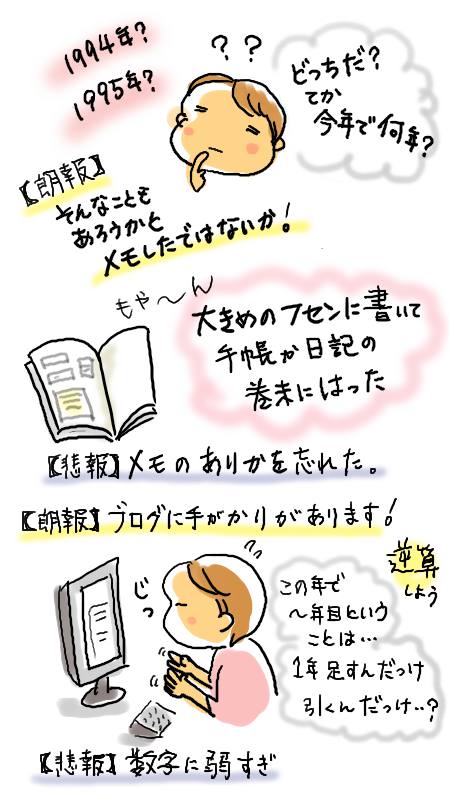 1994年?
1995年?
? ?
どっちだ?
てか
今年で何年?
【朗報】
そんなことも
あろうかと
メモしたではないか!
もや〜ん
大きめのフセンに書いて
手帳か日記の
巻末にはった
【悲報】メモのありかを忘れた。
【朗報】ブログに手がかりがあります!
逆算
しよう
じっ
この年で
〜年目という
ことは…
1年足すんだっけ
引くんだっけ‥?
【悲報】数字に弱すぎ